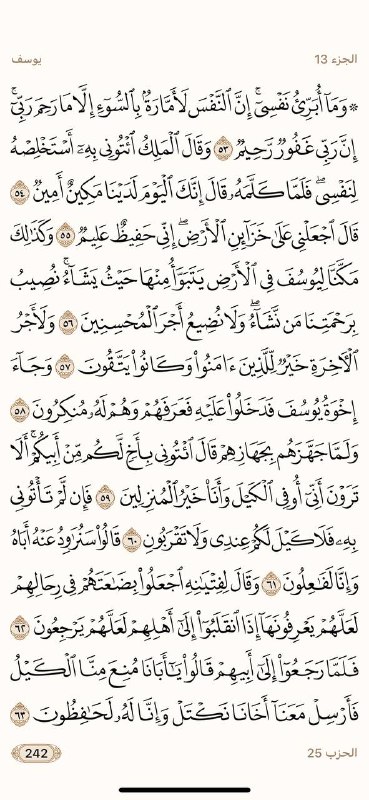 الجزء 13 يوسف
۞ وَمَآ أُبَرِّئُ نَفْسِيٓۚ إِنَّ ٱلنَّفْسَ لَأَمَّارَةُۢ بِٱلسُّوٓءِ إِلَّا مَا رَحِمَ رَبِّيٓۚ
إِنَّ رَبِّي غَفُورٞ رَّحِيمٞ ٥٣ وَقَالَ ٱلْمَلِكُ ٱئْتُونِي بِهِۦٓ أَسْتَخْلِصْهُ
لِنَفْسِيۖ فَلَمَّا كَلَّمَهُۥ قَالَ إِنَّكَ ٱلْيَوْمَ لَدَيْنَا مَكِينٌ أَمِينٞ ٥٤
قَالَ ٱجْعَلْنِي عَلَىٰ خَزَآئِنِ ٱلْأَرْضِۖ إِنِّي حَفِيظٌ عَلِيمٞ ٥٥ وَكَذَٰلِكَ
مَكَّنَّا لِيُوسُفَ فِي ٱلْأَرْضِ يَتَبَوَّأُ مِنْهَا حَيْثُ يَشَآءُۚ نُصِيبُ
بِرَحْمَتِنَا مَن نَّشَآءُۖ وَلَا نُضِيعُ أَجْرَ ٱلْمُحْسِنِينَ ٥٦ وَلَأَجْرُ
ٱلْأٓخِرَةِ خَيْرٞ لِّلَّذِينَ ءَامَنُوا۟ وَكَانُوا۟ يَتَّقُونَ ٥٧ وَجَآءَ
إِخْوَةُ يُوسُفَ فَدَخَلُوا۟ عَلَيْهِ فَعَرَفَهُمْ وَهُمْ لَهُۥ مُنكِرُونَ ٥٨
وَلَمَّا جَهَّزَهُم بِجَهَازِهِمْ قَالَ ٱئْتُونِي بِأَخٖ لَّكُم مِّنْ أَبِيكُمْۚ أَلَا
تَرَوْنَ أَنِّيٓ أُوفِي ٱلْكَيْلَ وَأَنَا۠ خَيْرُ ٱلْمُنزِلِينَ ٥٩ فَإِن لَّمْ تَأْتُونِي
بِهِۦ فَلَا كَيْلَ لَكُمْ عِندِي وَلَا تَقْرَبُونِ ٦٠ قَالُوا۟ سَنُرَٰوِدُ عَنْهُ أَبَاهُ
وَإِنَّا لَفَٰعِلُونَ ٦١ وَقَالَ لِفِتْيَٰنِهِ ٱجْعَلُوا۟ بِضَٰعَتَهُمْ فِي رِحَالِهِمْ
لَعَلَّهُمْ يَعْرِفُونَهَآ إِذَا ٱنقَلَبُوٓا۟ إِلَىٰٓ أَهْلِهِمْ لَعَلَّهُمْ يَرْجِعُونَ ٦٢
فَلَمَّا رَجَعُوٓا۟ إِلَىٰٓ أَبِيهِمْ قَالُوا۟ يَٰٓأَبَانَا مُنِعَ مِنَّا ٱلْكَيْلُ
فَأَرْسِلْ مَعَنَآ أَخَانَا نَكْتَلْ وَإِنَّا لَهُۥ لَحَٰفِظُونَ ٦٣
الحزب 25 242